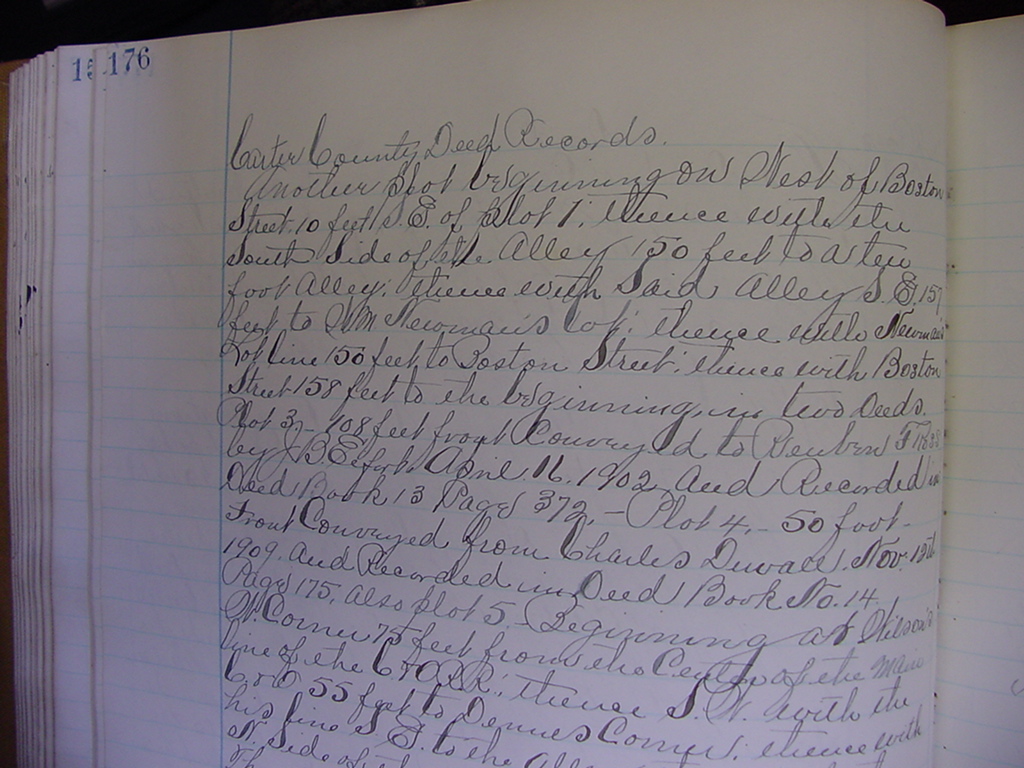 15 176
Carter County Deed Records.
Another plot beginning on West of Boston
Street 10 feet S. E. of plot 1; thence with the
South Side of the Alley 150 feet to a ten
foot Alley; thence with Said Alley S. E. 157
feet to Wm Newman's lot; thence with Newman's
Lot line 150 feet to Boston Street; thence with Boston
Street 158 feet to the beginning, in two deeds.
Plot 3,- 108 feet front Conveyed to Reuben
by J. B. April. 16. 1902 and Recorded in
Deed Book 13 Page 372,- Plot 4,- 50 foot-
Front Conveyed from Charles Duvall. Nov. 12th
1909. and Recorded in Deed Book No. 14.
Page 175, also plot 5. Beginning at Wilson's
W. Corner 75 feet from the Center of the Main
line of the C & O RR; thence S. W. with the
C & O 55 feet to Corner; thence with
his line S E. to the Alley
Side of